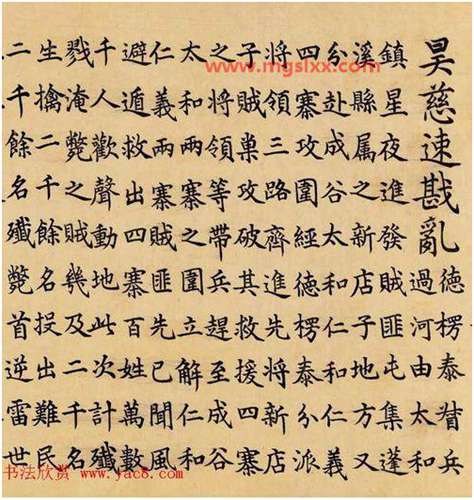 昊慈速戡亂
德楞泰督兵
過河由太和
鎮星夜進發賊匪屯集蓬
溪縣属之新店子地方又
分赴成谷太和仁和仁義
四寨攻圍經德楞泰分派
將領三路齊進先將新店
子賊巢攻破其救援四寨
之將領等帶兵趕至成谷
太和兩寨之圍立解仁和
仁義兩寨賊匪先已聞風
避遁救出四寨百姓萬數
千人歡聲動地此次計殲
戮淹斃之賊幾及二千名
生擒二千餘名投出難民
二千餘名殲斃首逆雷世
www.mgslxx.com
书法欣赏 www.yac8.com